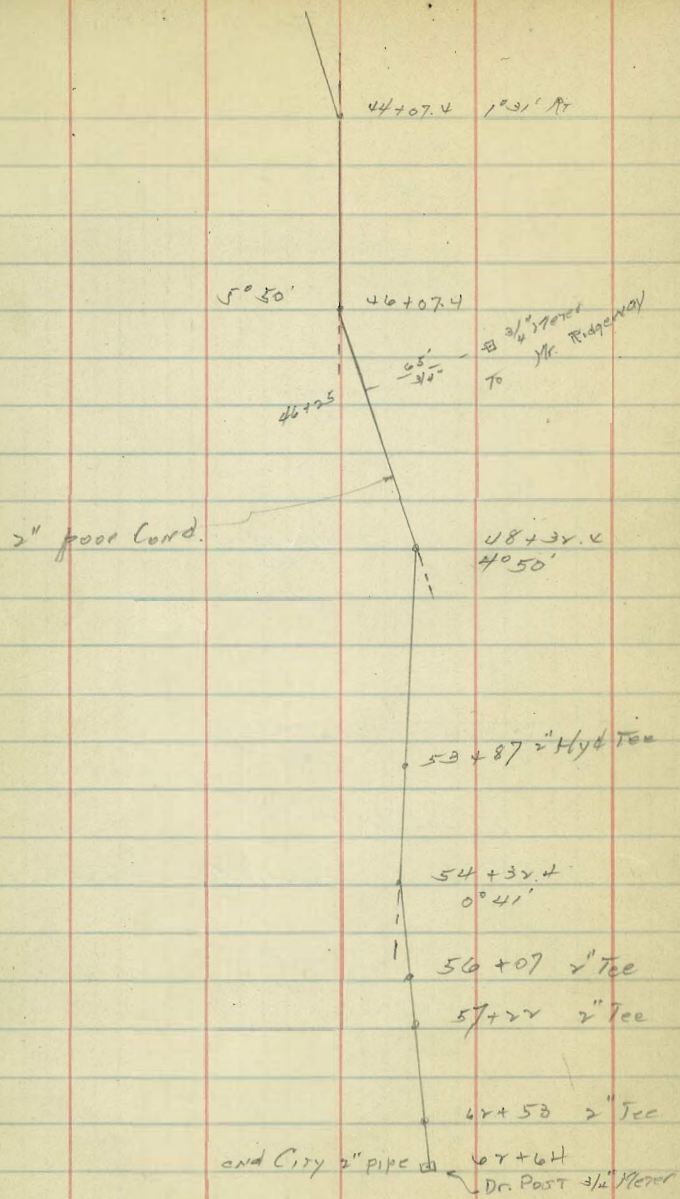 44+07.4 1°31' RT
5°50' 46+07.4
3/4" Meter
65' 3/4" To Mr. Ridgeway
46+25
2" poor Cond.
48+32.4
4°50'
53+87 2" Hyd Tee
54+32.4
0°41'
56+07 2" Tee
57+22 2" Tee
62+53 2" Tee
end City 2" pipe 62+64
Dr. Post 3/4" Meter